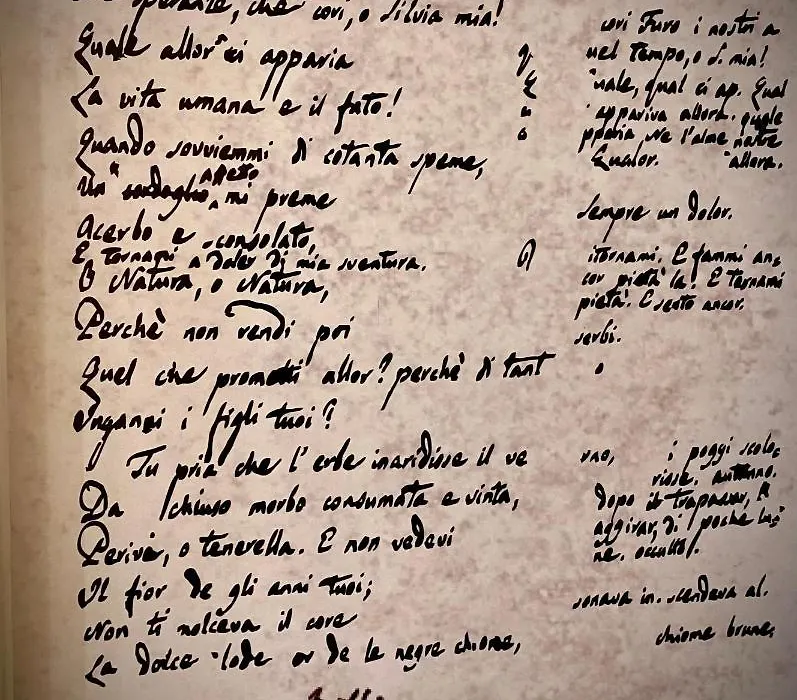 speranze, che cori, o Silvia mia!
Quale allor ci apparia
La vita umana e il fato!
Quando sovviemmi di cotanta speme,
Un affetto mi preme
Acerbo e sconsolato,
E tornami a doler di mia sventura.
O Natura, o Natura,
Perchè non rendi poi
Quel che prometti allor? perchè di tant
Inganni i figli tuoi?
Tu pria che l'erbe inaridisse il ve
Da chiuso morbo consumata e vinta,
Perivi, o tenerella. E non vedevi
Il fior de gli anni tuoi;
Non ti molceva il core
La dolce lode or de le negre chiome,
cori Furo i nostri a
nel tempo, o S. mia!
nale, qual ci ap. Qual
appariva allora. quale
pparia Ne l'alme nostre
Qualor. allora.
sempre un dolor.
itornami. E fammi anc
cor pietà la. E tornami
pietà. E sento ancor.
serbi.
o
rno, i poggi scolo
risse. autunno.
dopo il trapassar, l'
aggirar, di poche lu
ne. occulto.
sonava in. scendeva al.
chiome brune,